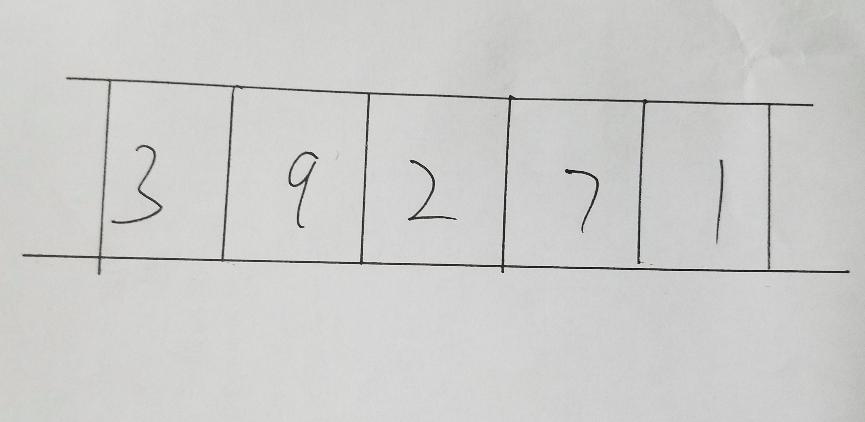 3 9 2 7 1